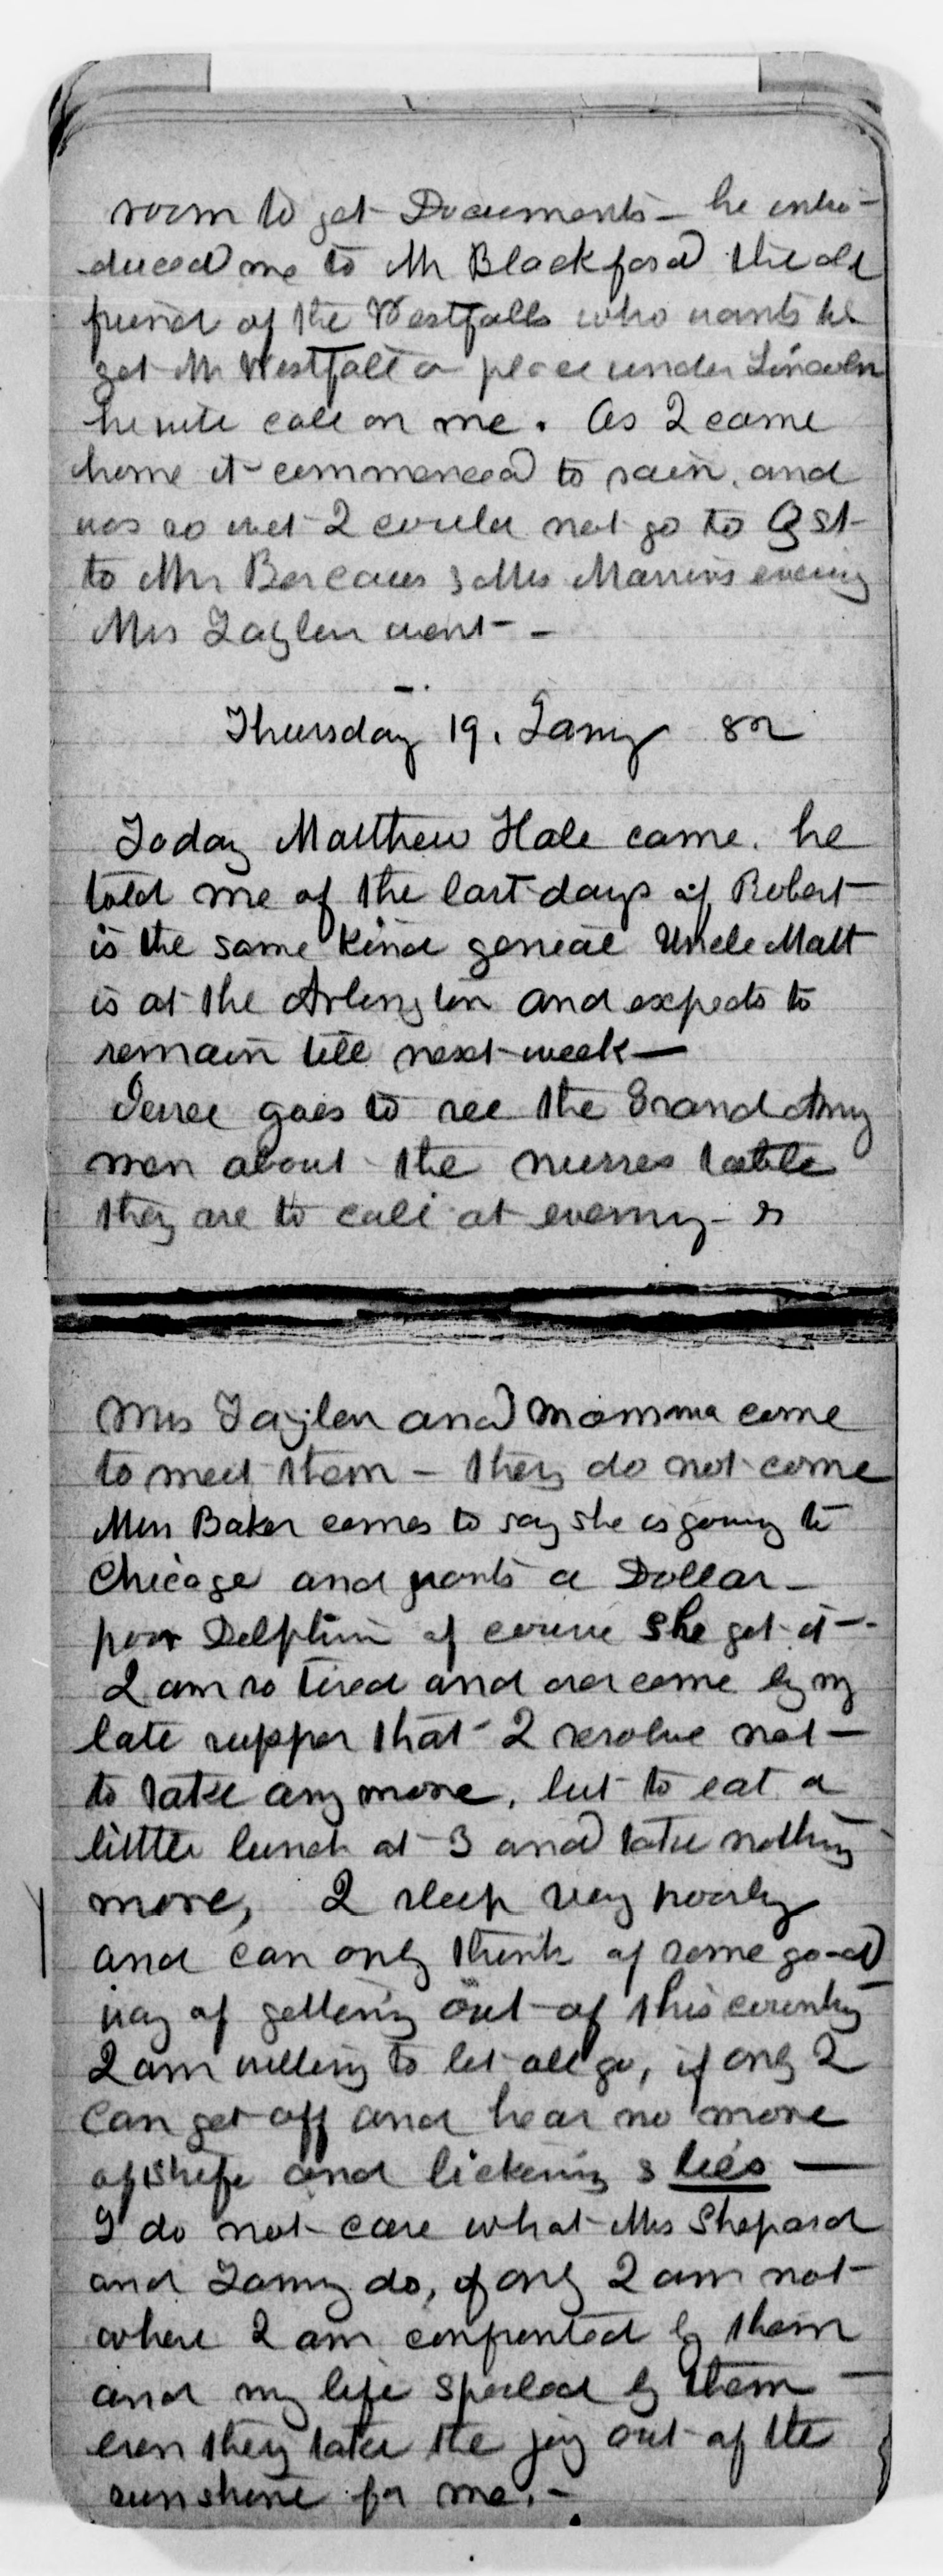 room to get Documents - he intro-
duced me to Mr Blackford the old
friend of the Westfalls who wants to
get Mr Westfall a place under Lincoln
he will call on me. As I came
home it commenced to rain, and
was so wet I could not go to Q St
to Mrs & Mrs evening
Mrs Taylor went -
Thursday 19. Jany 82
Today Matthew Hale came. he
told me of the last days of Robert
is the same kind genial Uncle Matt
is at the Arlington and expects to
remain till next week —
goes to see the Grand Army
men about the nurses table
they are to call at evening - &
Mrs Taylor and Mamma come
to meet them - they do not come
Mrs Baker comes to say she is going to
Chicago and wants a Dollar -
poor of course she got it -
I am so tired and overcome by my
late supper that I resolve not -
to take any more, but to eat a
little lunch at 3 and take nothing
more, I sleep very poorly
and can only think of some good
way of getting out of this country
I am willing to let all go, if only I
can get off and hear no more
of strife and bickering & lies —
I do not care what Mrs Shepard
and do, if only I am not
where I am confronted by them
and my life spoiled by them -
even they take the joy out of the
sunshine for me. -